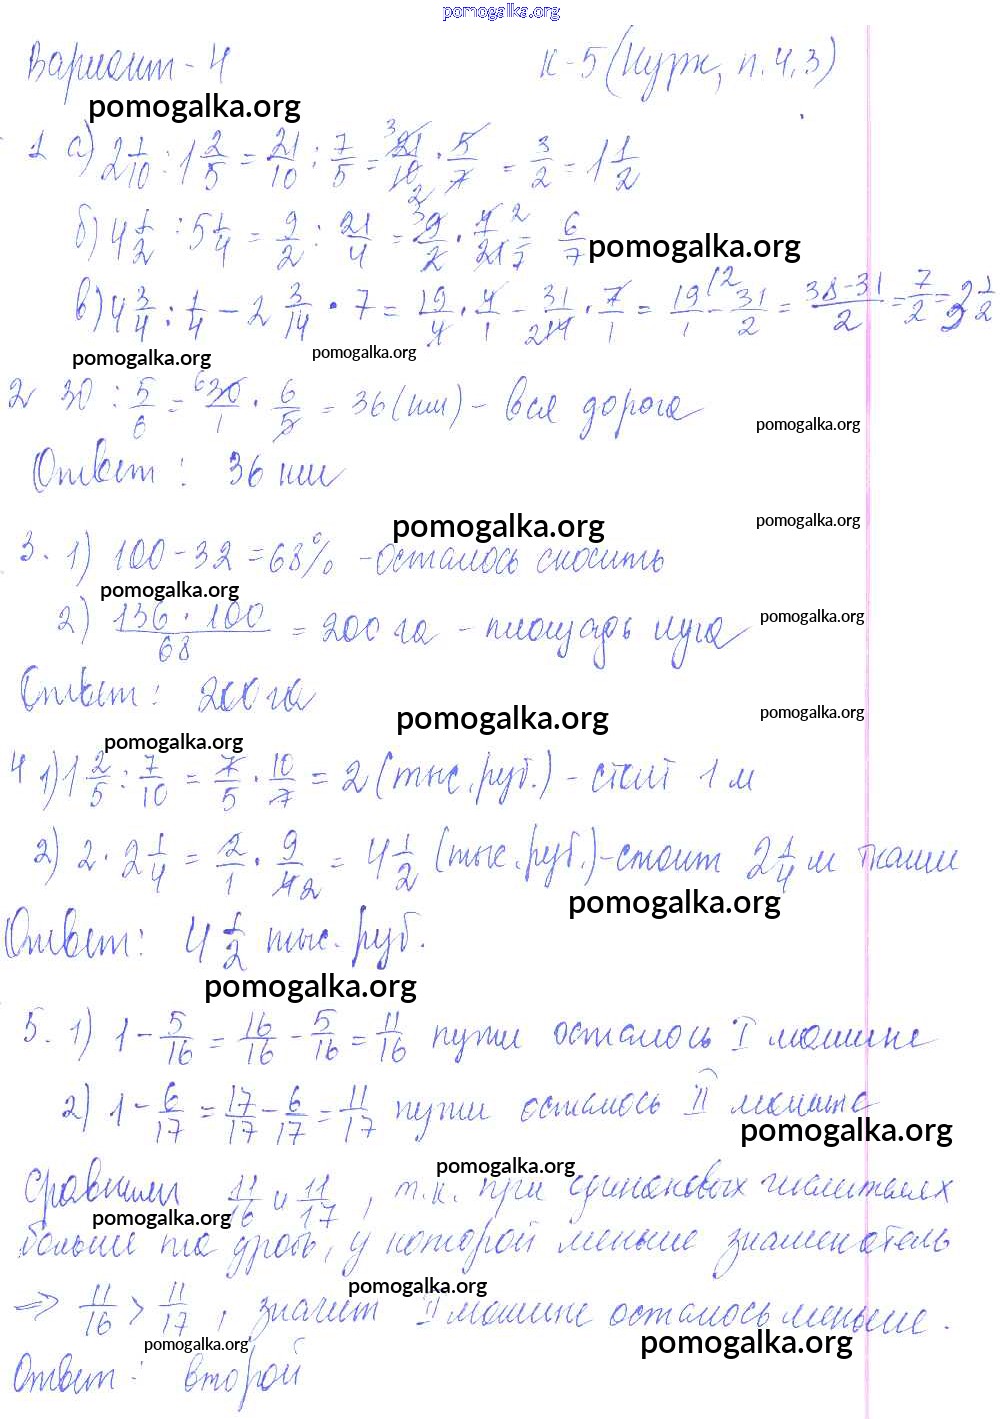 pomogalka.org
Вариант - 4 К-5 (Нурк, п. 4, 3)
pomogalka.org
1 а) 2 1/10 : 1 2/5 = 21/10 : 7/5 = 21/10 · 5/7 = 3/2 = 1 1/2
б) 4 1/2 : 5 1/4 = 9/2 : 21/4 = 9/2 · 4/21 = 6/7
pomogalka.org
в) 4 3/4 : 1/4 - 2 3/14 · 7 = 19/4 · 4/1 - 31/14 · 7/1 = 19/1 - 31/2 = 38-31/2 = 7/2 = 3 1/2
pomogalka.org pomogalka.org
2 30 : 5/6 = 30/1 · 6/5 = 36 (км) - вся дорога
pomogalka.org
Ответ : 36 км
pomogalka.org pomogalka.org
3. 1) 100 - 32 = 68% - осталось скосить
pomogalka.org
2) 136 · 100/68 = 200 га - площадь луга
pomogalka.org
Ответ : 200 га
pomogalka.org pomogalka.org
pomogalka.org
4 1) 1 2/5 : 7/10 = 7/5 · 10/7 = 2 (тыс. руб.) - стоит 1 м
2) 2 · 2 1/4 = 2/1 · 9/4 = 4 1/2 (тыс. руб.) - стоит 2 1/4 м ткани
pomogalka.org
Ответ : 4 1/2 тыс. руб.
pomogalka.org
5. 1) 1 - 5/16 = 16/16 - 5/16 = 11/16 пути осталось I машине
2) 1 - 6/17 = 17/17 - 6/17 = 11/17 пути осталось II машине
pomogalka.org
pomogalka.org
Сравним 11/16 и 11/17 , т.к. при одинаковых числителях
pomogalka.org
больше та дробь, у которой меньше знаменатель
pomogalka.org
=> 11/16 > 11/17 , значит II машине осталось меньше.
pomogalka.org pomogalka.org
Ответ : второй